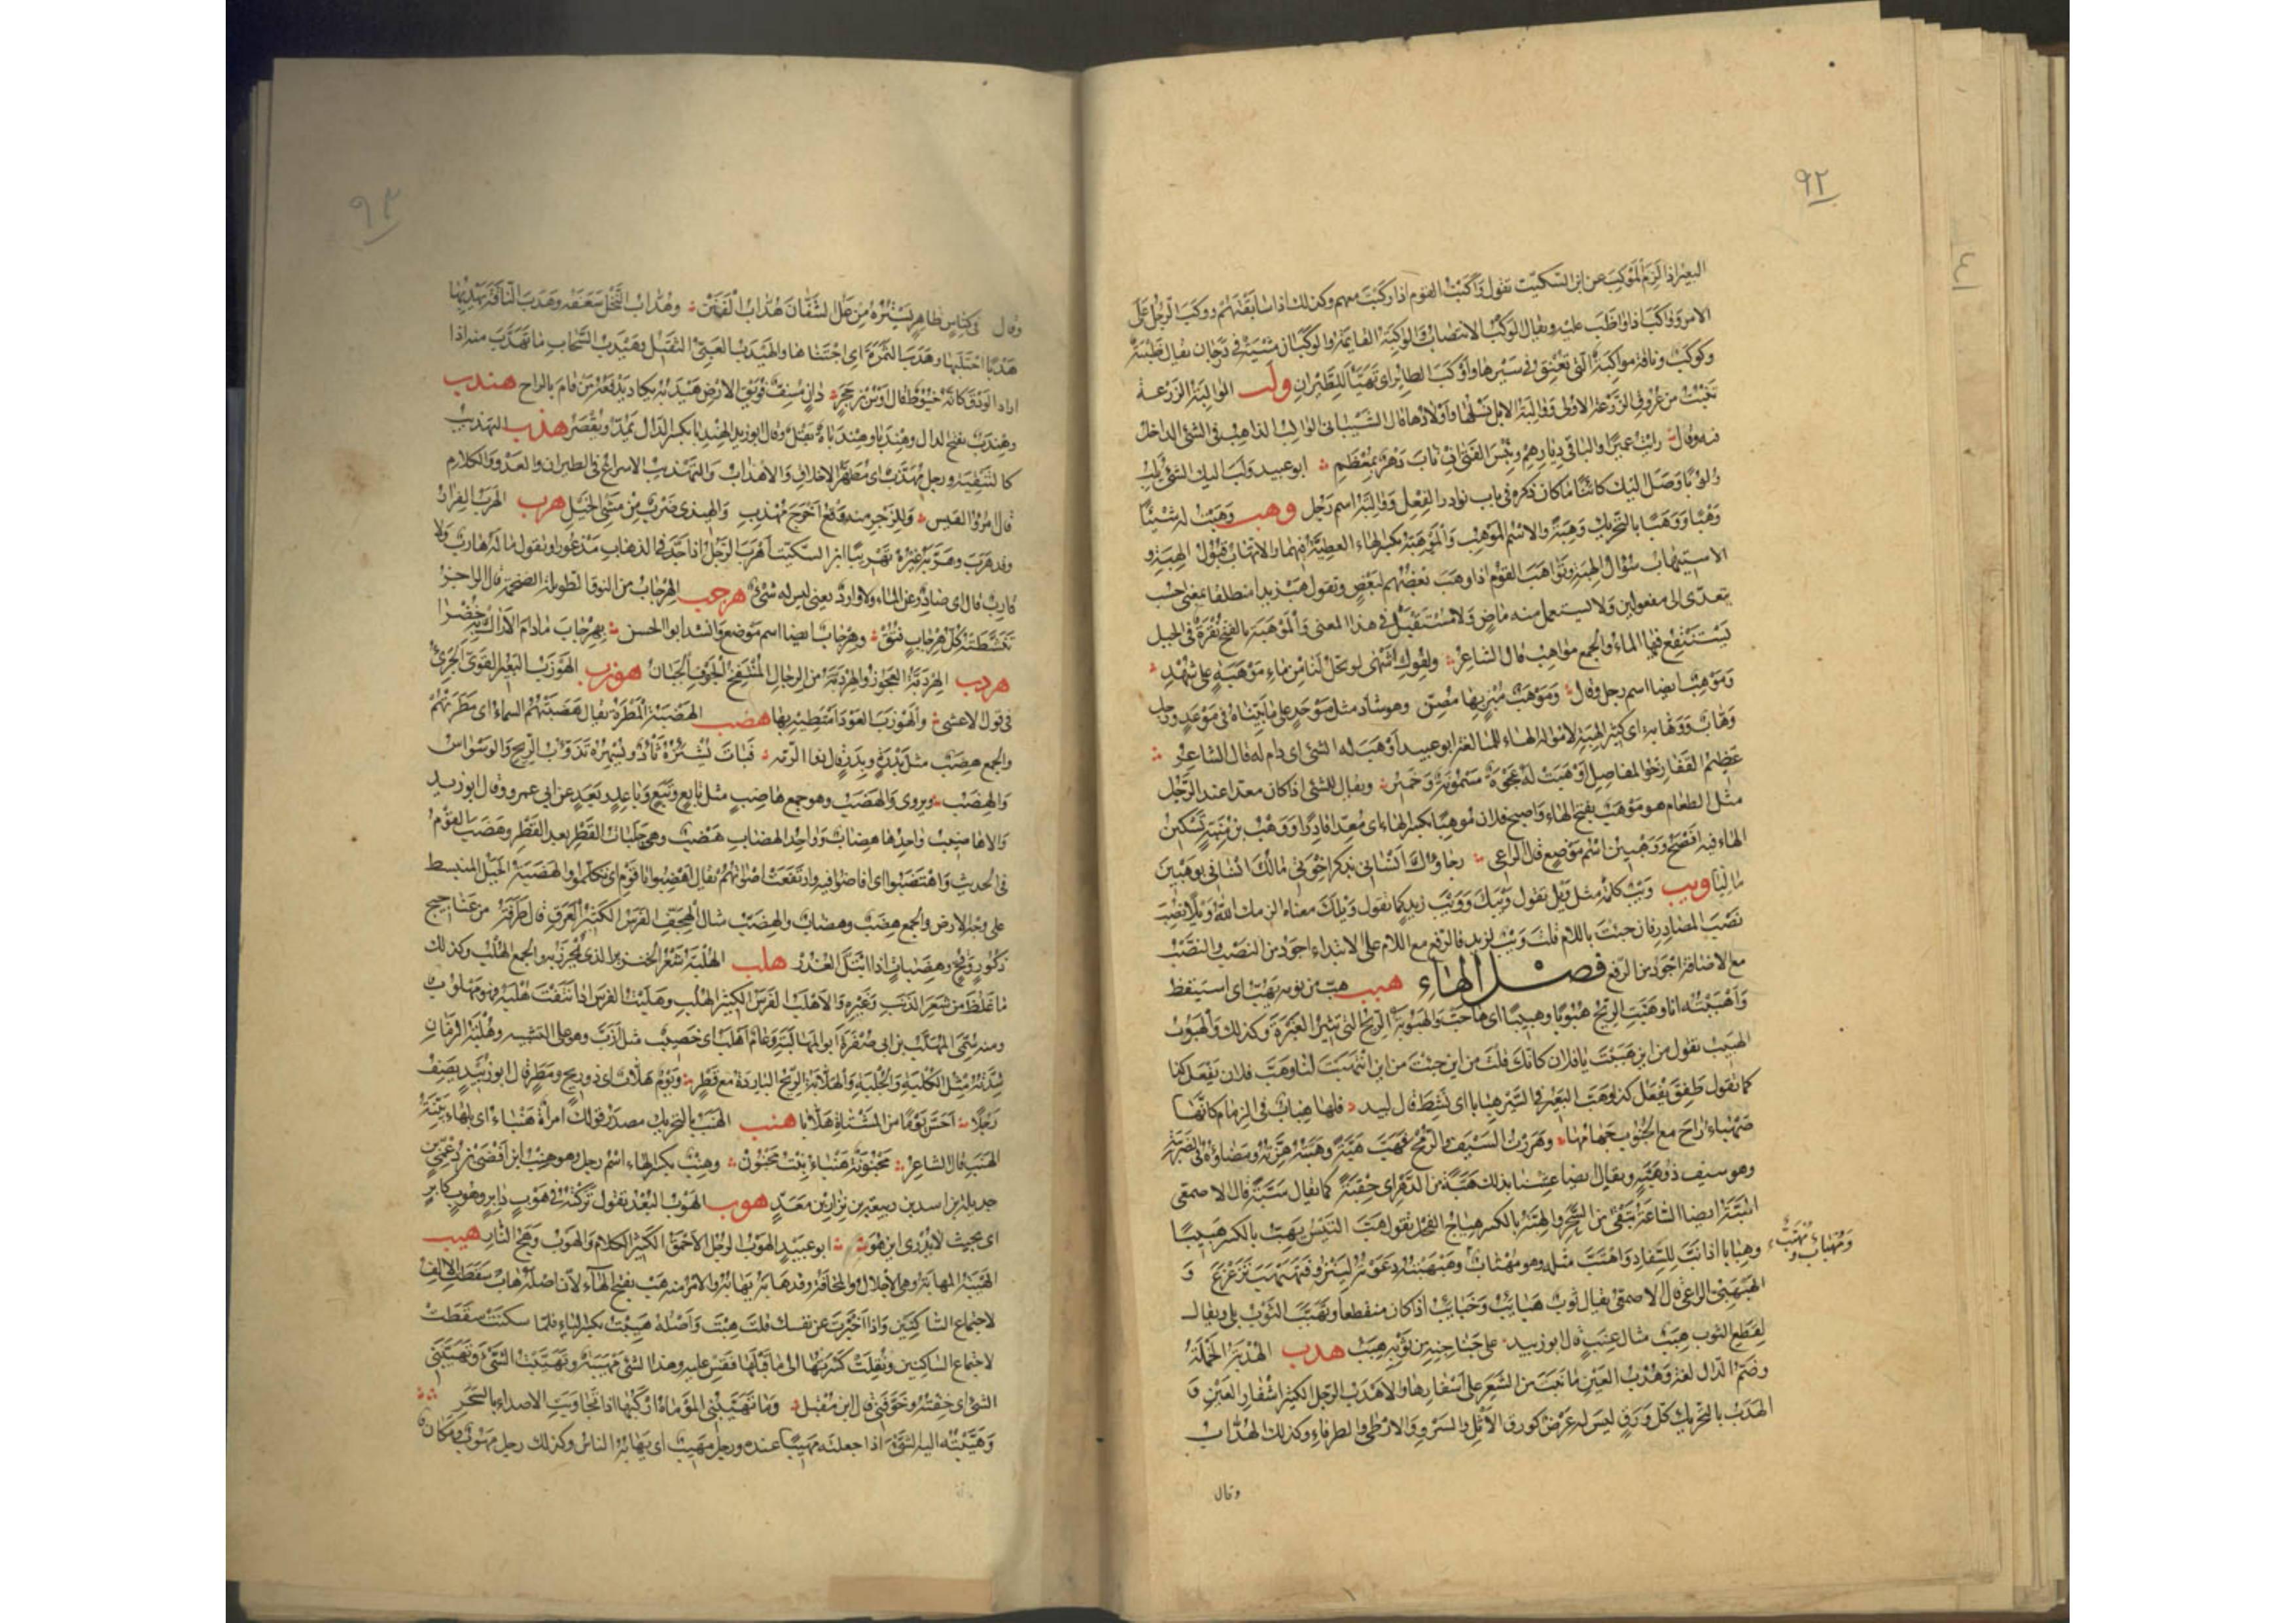 ٩٢
البعير اذا لزم الموكب عن ابن السكيت تقول واكبت القوم اذا ركبت معهم وكذلك اذا سابقتهم ووكب الرجل على
الامر وواكب اذا واظب عليه ويقال الوكب الانتصاب والواكبة القايمة والوكبان مشية في درجان يقال ظبية
وكوكب وناقة مواكبة التي تعنق في سيرها واوكب الطاير اى تهيأ للطيران ولب الوالبة الزرعة
تنبت من عروق الزرعة الاولى ووالبة الابل نسلها واولادها قال الشيباني الوالب الذاهب في الشئ الداخل
فيه وقال رايت عميرا والبا في ديارهم وبئس الفتى ان ناب دهر بمعظم ابو عبيد ولب اليك الشئ يلب
ولوبا وصل اليك كائنا ما كان ذكره في باب نوادر الفعل ووالبة اسم رجل وهب وهبت له شيئا
وهبا ووهبا بالتحريك وهبة والاسم الموهب والموهبة بكسر الهاء العطية فيهما والاتهاب قبول الهبة و
الاستيهاب سؤال الهبة وتواهب القوم اذا وهب بعضهم لبعض وتقول هب زيدا منطلقا بمعنى احسب
يتعدى الى مفعولين ولا يستعمل منه ماض ولا مستقبل في هذا المعنى والموهبة بالفتح نقرة في الجبل
يستنقع فيها الماء والجمع مواهب قال الشاعر ولفوك اشهى لو يحل لنا من ماء موهبة على شهد
وموهب ايضا اسم رجل وقال وموهب مبز بها مصن وهو شاذ مثل موحد على ما بيناه في موعد ورجل
وهاب ووهابة اى كثير الهبة لامواله الهاء للمبالغة ابو عبيد اوهب له الشئ اى دام له قال الشاعر
عظيم القفا رخو المفاصل اوهبت له عجوة مسمونة وخمير ويقال للشئ اذا كان معدا عند الرجل
مثل الطعام هو موهب بفتح الهاء واصبح فلان موهبا بكسر الهاء اى معدا قادرا ووهب بن منبه تسكين
الهاء فيه افصح ووهبين اسم موضع قال الراعى رجاؤك انساني تذكر اخوتي ومالك انساني بوهبين
ماليا ويب ويب كلمة مثل ويل تقول ويبك وويب زيد كما تقول ويلك معناه الزمك الله ويلا نصب
نصب المصادر فان جئت باللام قلت ويب لزيد فالرفع مع اللام على الابتداء اجود من النصب والنصب
مع الاضافة اجود من الرفع فصل الهاء هبب هب من نومه يهب اى استيقظ
واهببته انا وهبت الريح هبوبا وهبيبا اى هاجت والهبوبة الريح التي تثير الغبرة وكذلك والهبوب
الهبيب تقول من اين هببت يا فلان كانك قلت من اين جئت من اين انتهبت لنا وهب فلان يفعل كذا
كما تقول طفق يفعل كذا وهب البعير في السير هبابا اى نشط قال لبيد فلها هباب في الزمام كانها
صهباء راح مع الجنوب جهامها وهززت السيف والرمح فهب هبة وهبته هزته ومضاؤه في الضريبة
وهو سيف ذو هبة ويقال ايضا عشنا بذلك هبة من الدهر اى حقبة كما يقال سبة قال الاصمعى
الهبة ايضا الساعة تبقى من السحر والهبة بالكسر هياج الفحل تقول هب التيس يهب بالكسر هبيبا
وهبابا اذا نب للسفاد واهتب مثله وهو مهتاب وهبهبته دعوته لينزو فتهبهب تزعزع و
ومهباب ومهبب
الهبهبي الراعى قال الاصمعى يقال ثوب هبايب وخبايب اذا كان منقطعا وتهبب الثوب بلى ويقال
لقطع الثوب هبب مثال عنب قال ابو زبيد على جناجنه من ثوبه هبب هدب الهدبة الخملة
وضم الدال لغة وهدب العين ما نبت من الشعر على اشفارها والاهدب الرجل الكثير اشفار العين و
الهدب بالتحريك كل ورق ليس له عرض كورق الاثل والسرو والارطى والطرفاء وكذلك الهداب
وقال
٩٣
وقال في كناس ظاهر يستره من عل الشفان هداب الفنن وهداب النخل سعفه وهدب الناقة يهدبها
هدبا احتلبها وهدب الثمرة اى اجتناها والهيدب العيى الثقيل وهيدب السحاب ما تهدب منه اذا
اراد الودق كانه خيوط قال اوس بن حجر دان مسف فويق الارض هيدبه يكاد يدفعه من قام بالراح هندب
وهندب بفتح الدال وهندبا وهندباة بقل وقال ابو زيد الهندبا بكسر الدال يمد ويقصر هذب التهذيب
كالتنقية ورجل مهذب اى مطهر الاخلاق والاهذاب والتهذيب الاسراع في الطيران والعدو والكلام
قال امرؤ القيس وللزجر منه وقع اخرج مهذب والهيذبى ضرب من مشى الخيل هرب الهرب الفرار
وقد هرب وهربه غيره تهريبا ابن السكيت اهرب الرجل اذا جد في الذهاب مذعورا وتقول ما له هارب ولا
قارب قال اى صادر عن الماء ولا وارد يعنى ليس له شئ هرجب الهرجاب من النوق الطويلة الضخمة قال الراجز
تنشطته كل هرجاب فنق وهرجاب ايضا اسم موضع وانشد ابو الحسن بهرجاب ما دام الاراك به خضرا
هردب الهردبة العجوز والهردبة من الرجال المنتفخ الجوف الجبان هوزب الهوزب البعير القوى الجرئ
في قول الاعشى والهوزب العود امتطيه بها هضب الهضبة المطرة يقال هضبتهم السماء اى مطرتهم
والجمع هضب مثل بدرة وبدر قال ذو الرمة فبات يشئزه ثأد ويسهره تذوب الريح والوسواس
والهضب ويروى والهضب وهو جمع هاضب مثل تابع وتبع وباعد وبعد عن ابي عمرو وقال ابو زيد
والاهاضيب واحدها هضاب وواحد الهضاب هضب وهي حلبات القطر بعد القطر وهضب القوم
في الحديث واهتضبوا اى افاضوا فيه وارتفعت اصواتهم يقال اهضبوا يا قوم اى تكلموا والهضبة الجبل المنبسط
على وجه الارض والجمع هضب وهضاب والهضب مثال الهجف الفرس الكثير العرق قال طرفة من عناجيج
ذكور وقح وهضبات اذا ابتل العذر هلب الهلبة شعر الخنزير الذى يخرز به والجمع الهلب وكذلك
ما غلظ من شعر الذنب وغيره والاهلب الفرس الكثير الهلب وهلبت الفرس اذا نتفت هلبه فهو مهلوب
ومنه سمى المهلب بن ابى صفرة ابو المهالبة وعام اهلب اى خصيب مثل ازب وهو على التشبيه وهلبة الزمان
شدته مثل الكلبة والجلبة والهلابة الريح الباردة مع قطر ويوم هلاب اى ذو ريح ومطر قال ابو زبيد يصف
رجلا احس يوما من المشتاة هلابا هنب الهنب بالتحريك مصدر قولك امرأة هنباء اى بلهاء بينة
الهنب قال الشاعر مجنونة هنباء بنت مجنون وهنب بكسر الهاء اسم رجل وهو هنب ابن افصى بن دعمى بن
جديلة بن اسد بن ربيعة بن نزار بن معد هوب الهوب البعد تقول تركته في هوب دابر وهوب كابر
اى بحيث لا يدرى اين هو ابو عبيد الهوب الرجل الاحمق الكثير الكلام والهوب وهج النار هيب
الهيبة المهابة وهي الاجلال والمخافة وقد هابه يهابه والامر منه هب بفتح الهاء لان اصله هاب سقطت الالف
لاجتماع الساكنين واذا اخبرت عن نفسك قلت هبت واصله هيبت بكسر الياء فلما سكنت سقطت
لاجتماع الساكنين ونقلت كسرتها الى ما قبلها فقس عليه وهذا الشئ مهيبة وتهيبت الشئ وتهيبنى
الشئ اى خفته وخوفنى قال ابن مقبل وما تهيبنى الموماة اركبها اذا تجاوبت الاصداء بالسحر
وهيبته اليه الشئ اذا جعلته مهيبا عنده ورجل مهيب اى يهابه الناس وكذلك رجل مهوب ومكان